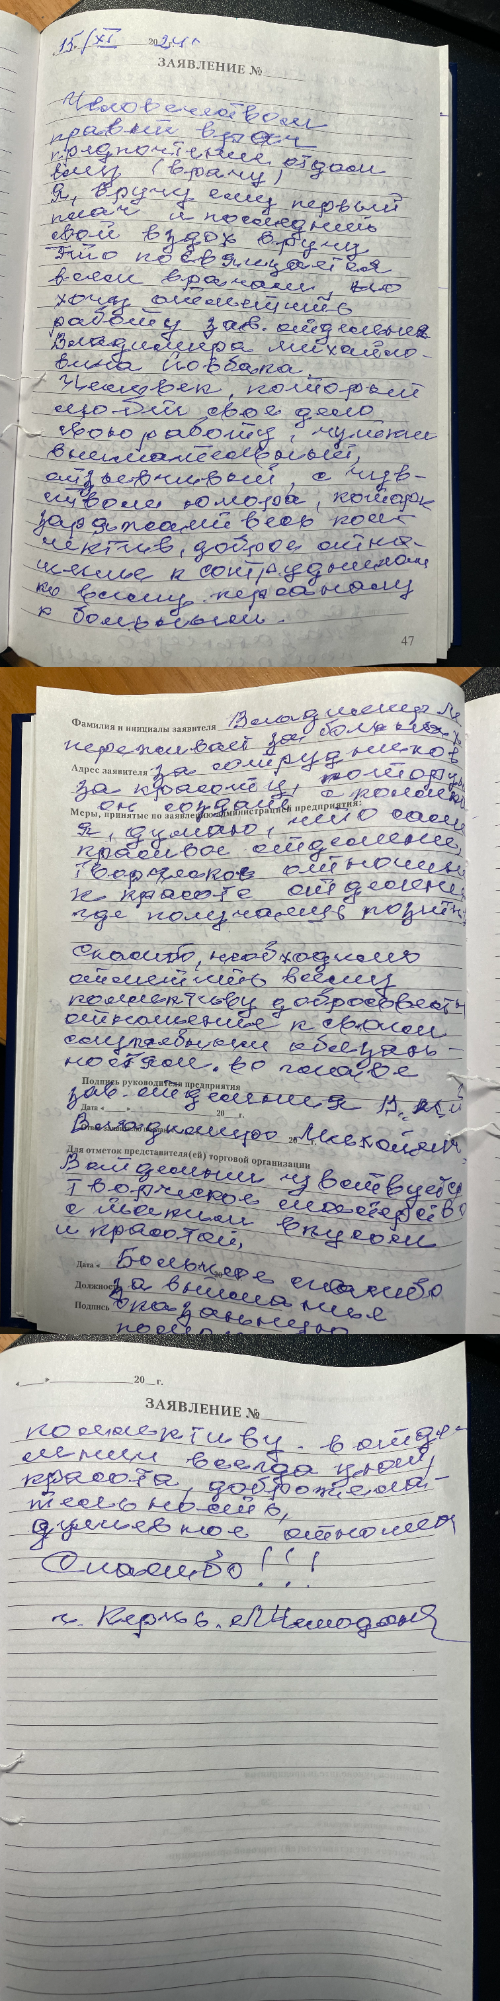 15/XI 2024г
ЗАЯВЛЕНИЕ №
Человечеством
правит врач
предпочтение отдам
ему (врачу)
Я, вручу ему первый
плач и последний
свой вздох вручу
Это посвящается
всем врачам, но
хочу отметить
работу зав. отделения
Владимира Михайло-
вича Човбака.
Человек, который
любит свое дело
свою работу, чуткий
внимательный,
отзывчивый, с чув-
ством юмора, который
заряжает весь кол-
лектив, доброе отно-
шение к сотрудникам
ко всему персоналу
к больным.
47
Фамилия и инициалы заявителя Владимир М
переживает за больных
Адрес заявителя за сотрудников
за красоту, которую
он создал с
Меры, принятые по заявлению администрацией предприятия:
Я, думаю, что самое
красивое отделение,
творческое отношение
к красоте отделения
где получаешь позитив
Спасибо, необходимо
отметить всему
коллективу добросовестн
отношение к своим
служебным обязан-
ностям. во главе
Подпись руководителя предприятия
зав. отделения В.
Дата « 20 г.
Владимиру Михайлович
Для отметок представителя(ей) торговой организации
В отделении чувствуется
творческое мастерство
с таким вкусом
и красотой,
Дата « Большое спасибо
Должность за внимание
Подпись
коллективу. в отде-
лении всегда уют,
красота, доброжела-
тельность,
душевное отношен
Спасибо!!!
г. Керчь.
« » 20 г.
ЗАЯВЛЕНИЕ №